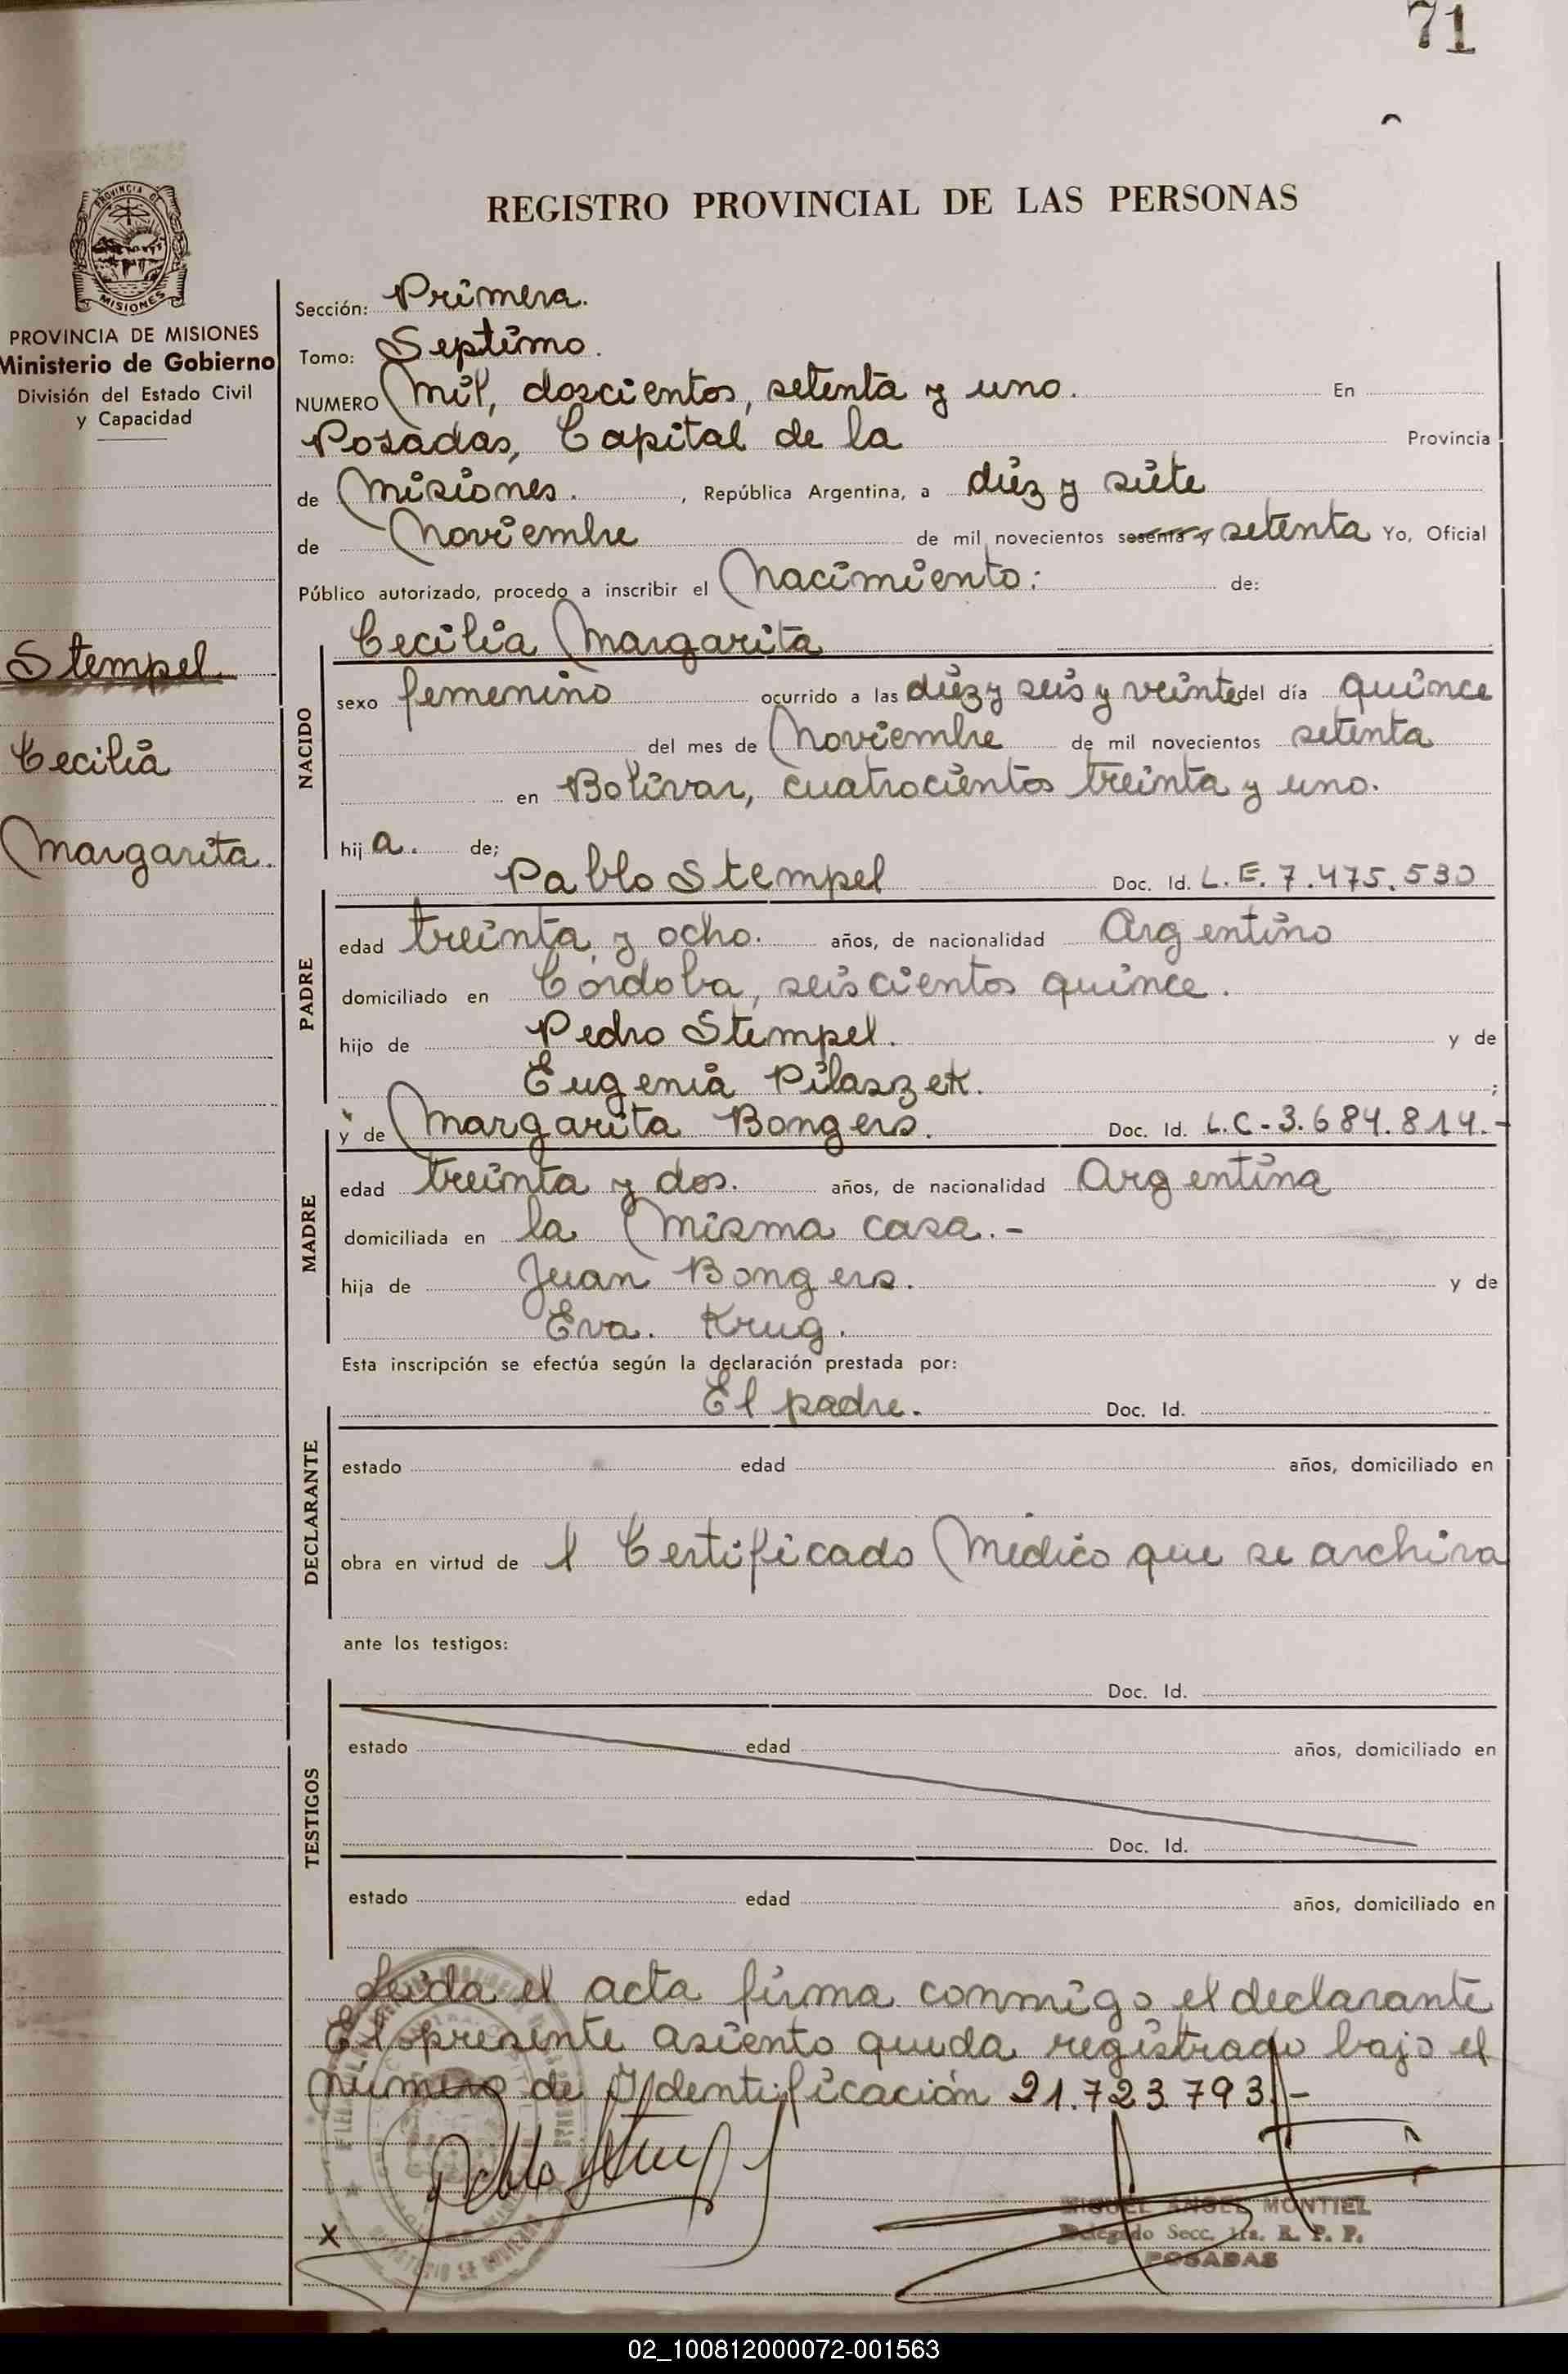 71
REGISTRO PROVINCIAL DE LAS PERSONAS
PROVINCIA DE MISIONES
PROVINCIA DE MISIONES
Ministerio de Gobierno
División del Estado Civil
y Capacidad
Stempel.
Cecilia
Margarita.
Sección: Primera.
Tomo: Septimo.
NUMERO Mil, doscientos, setenta y uno. En
Posadas, Capital de la Provincia
de Misiones. , República Argentina, a diez y siete
de Noviembre de mil novecientos sesenta y setenta Yo, Oficial
Público autorizado, procedo a inscribir el Nacimiento: de:
Cecilia Margarita
NACIDO
sexo femenino ocurrido a las diez y seis y veinte del día quince
del mes de Noviembre de mil novecientos setenta
en Bolívar, cuatrocientos treinta y uno.
hij a. de;
Pablo Stempel Doc. Id. L.E. 7.475.530
PADRE
edad treinta y ocho. años, de nacionalidad Argentino
domiciliado en Córdoba, seiscientos quince.
hijo de Pedro Stempel. y de
Eugenia Pilaszek. ;
y de Margarita Bongers. Doc. Id. L.C-3.684.814.-
MADRE
edad treinta y dos. años, de nacionalidad Argentina
domiciliada en la Misma casa.-
hija de Juan Bongers. y de
Eva. Krug.
Esta inscripción se efectúa según la declaración prestada por:
El padre. Doc. Id.
DECLARANTE
estado edad años, domiciliado en
obra en virtud de l Certificado Médico que se archiva
ante los testigos:
Doc. Id.
TESTIGOS
estado edad años, domiciliado en
Doc. Id.
estado edad años, domiciliado en
Leida el acta firma conmigo el declarante
El presente asiento queda registrado bajo el
número de Identificación 21.723.793.-
Pablo Stempel
x
MIGUEL ANGEL MONTIEL
Delegado Secc. 1ra. R. P. P.
POSADAS
02_100812000072-001563